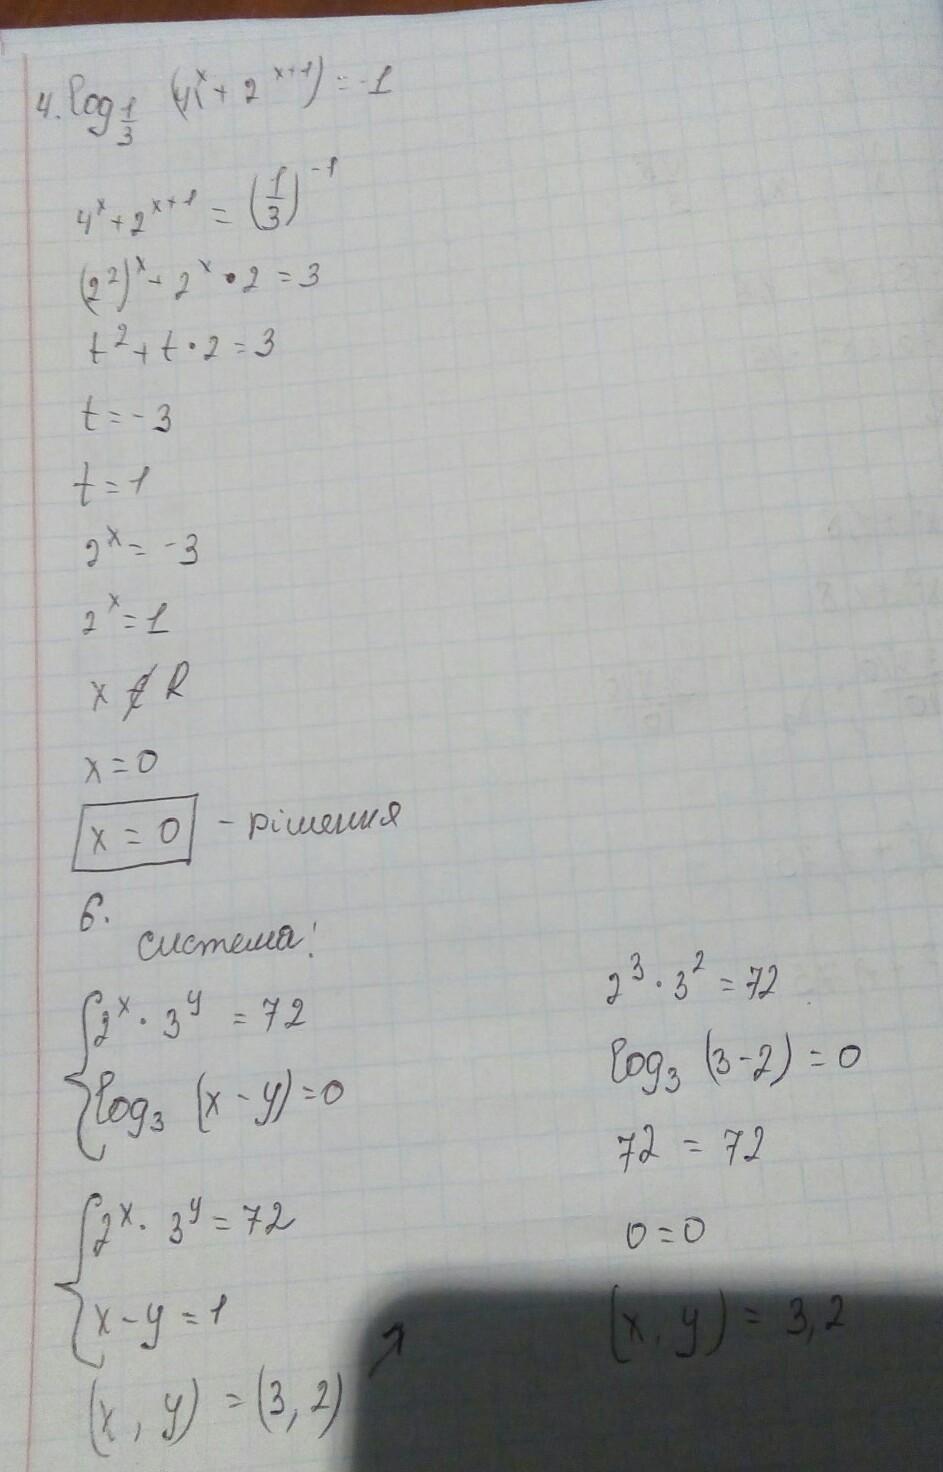 4. log_{1/3} (4^x + 2^{x+1}) = -1
4^x + 2^{x+1} = (1/3)^{-1}
(2^2)^x + 2^x • 2 = 3
t^2 + t • 2 = 3
t = -3
t = 1
2^x = -3
2^x = 1
x ∉ R
x = 0
x = 0 - рішення
6.
система:
{ 2^x · 3^y = 72
log_3 (x - y) = 0
{ 2^x · 3^y = 72
x - y = 1
(x, y) = (3, 2) ↗
2^3 · 3^2 = 72
log_3 (3-2) = 0
72 = 72
0 = 0
(x, y) = 3,2